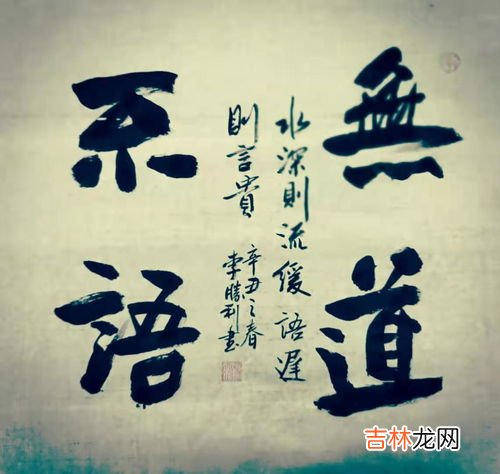 無道
不語
水深則流緩語遲
則言貴
辛丑之春
李勝利書
吉林龙网